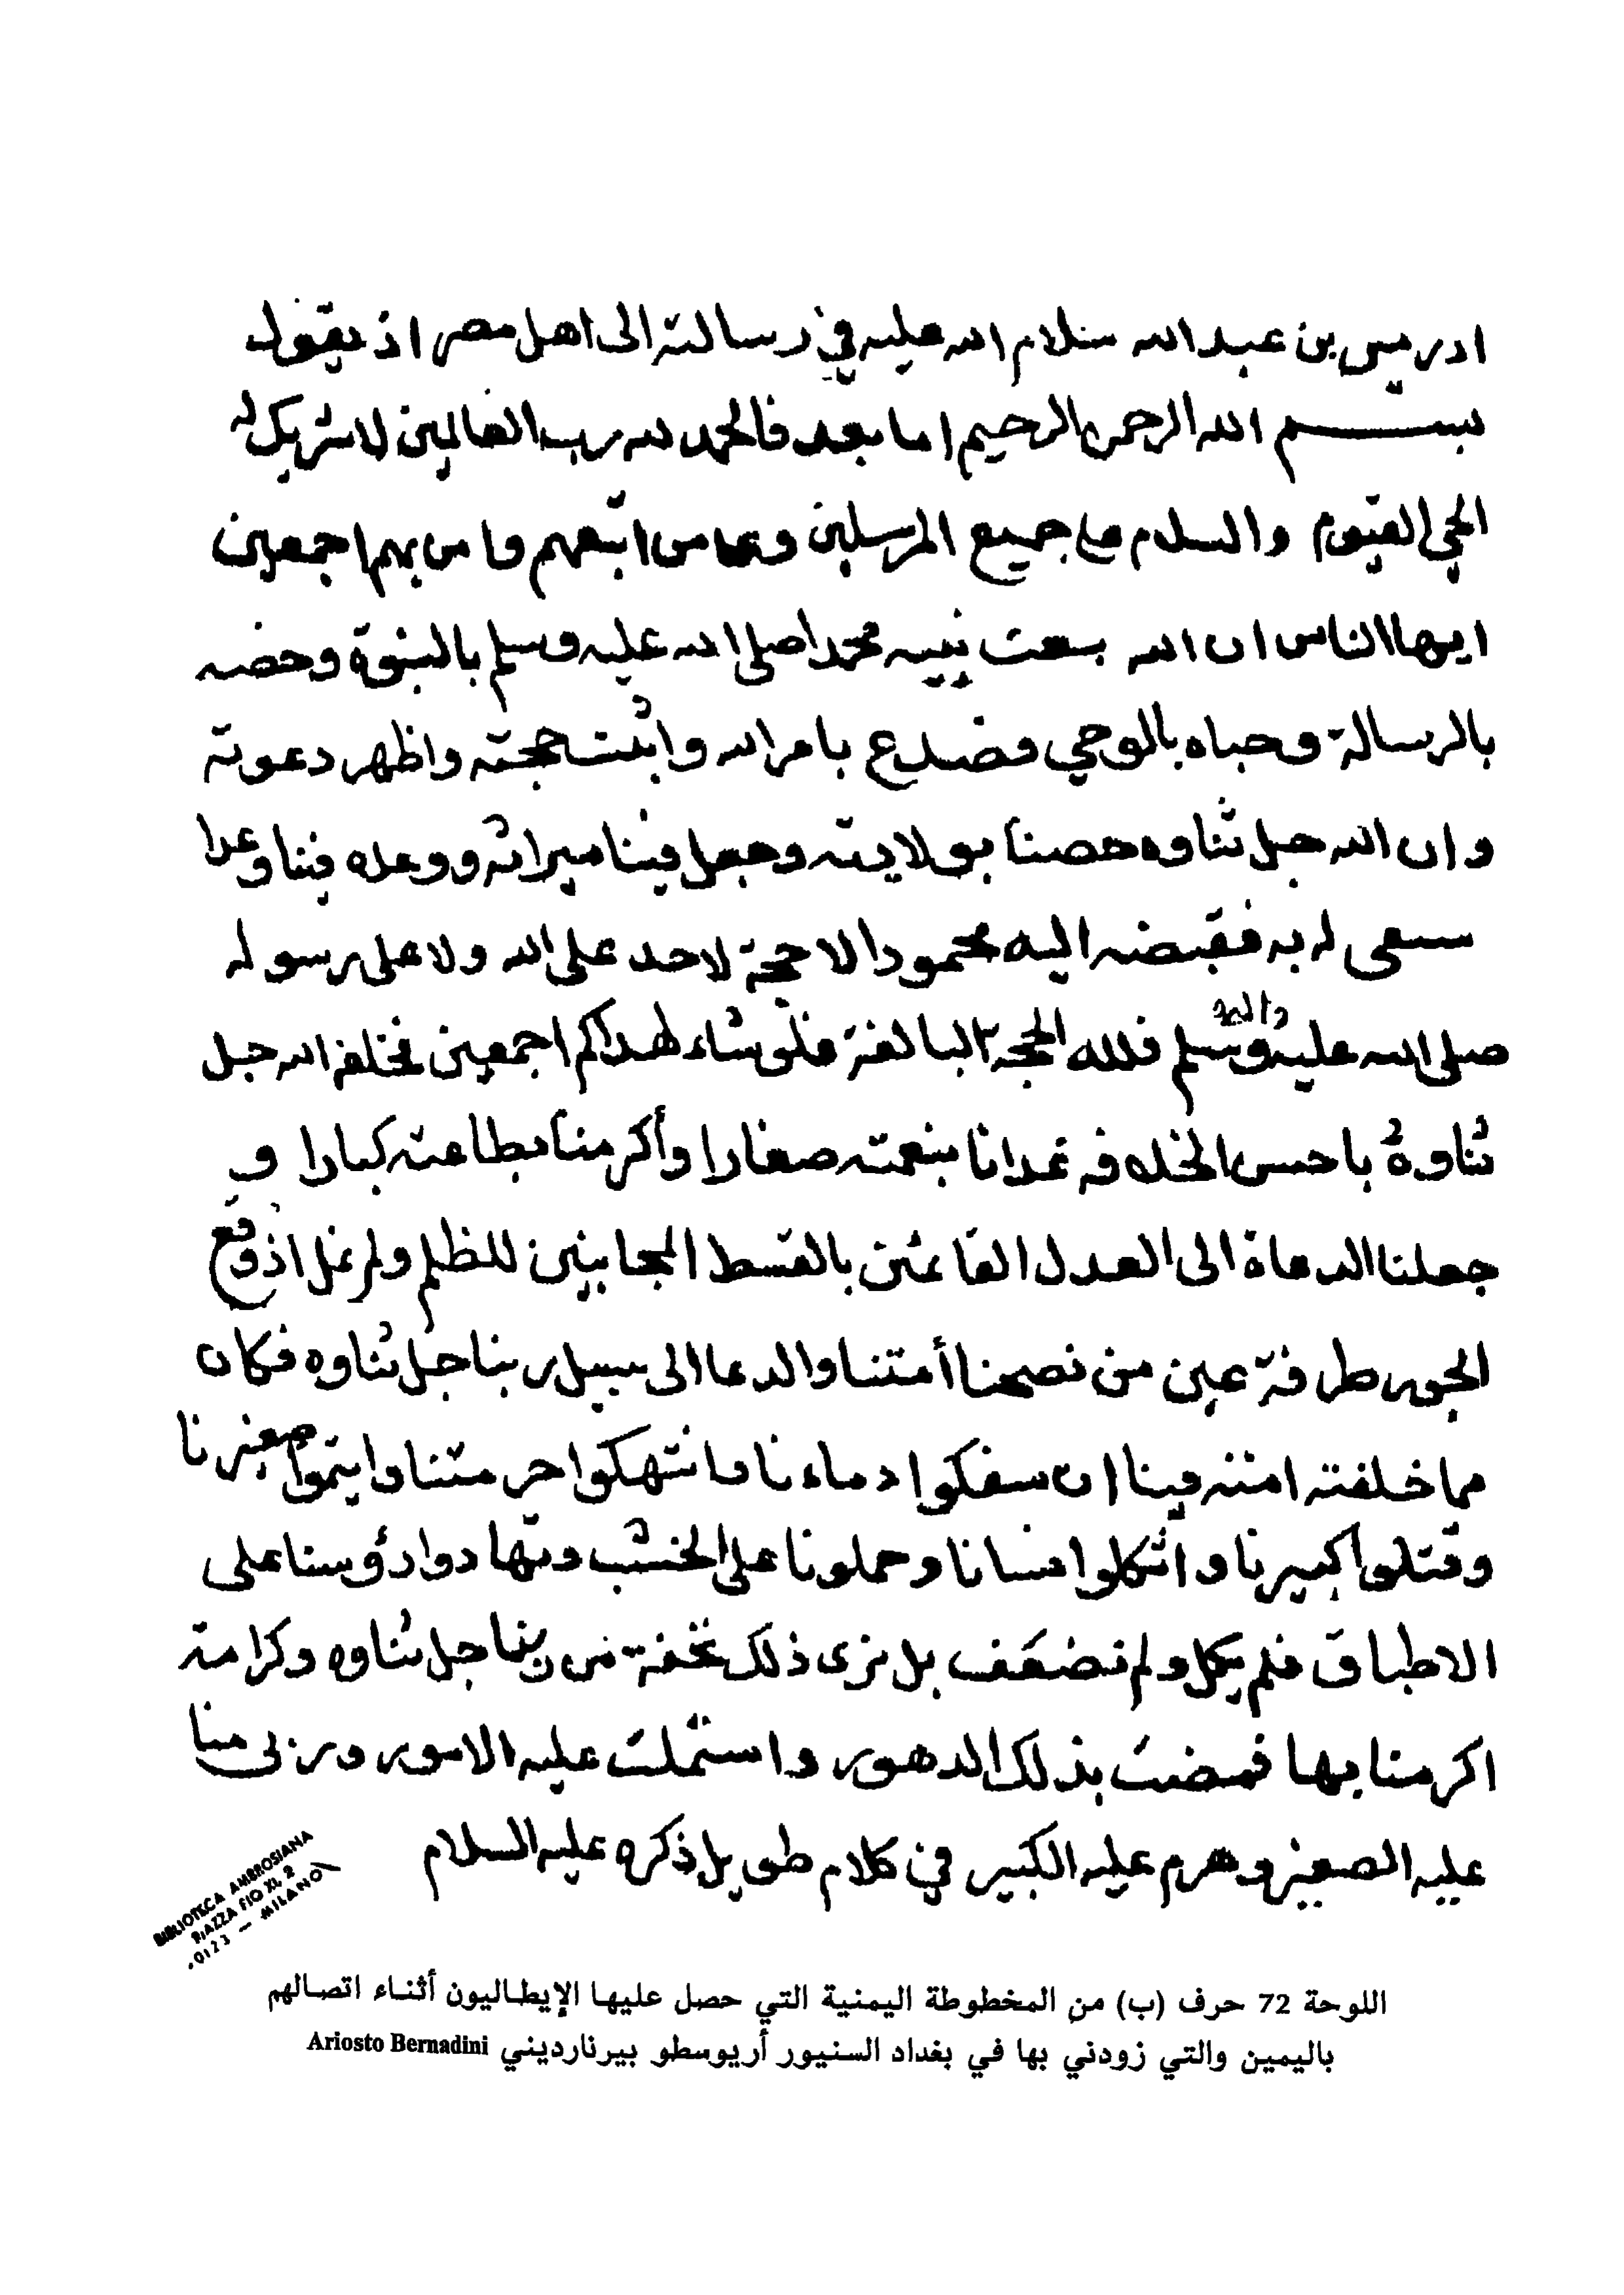 ادريس بن عبد الله سلام الله عليه في رسالته الى اهل مصر اذ يقول
بسم الله الرحمن الرحيم اما بعد فالحمد لله رب العالمين لا شريك له
الحي القيوم والسلام على جميع المرسلين وعلى من اتبعهم وامن بهم اجمعين
ايها الناس ان الله بعث نبيه محمدا صلى الله عليه وسلم بالنبوة وخصه
بالرسالة وحباه بالوحي فصدع بامر الله واثبت حجته واظهر دعوته
وان الله جل ثناوه خصنا بولايته وجعل فينا ميراثه ووعده فينا وعدا
سعى له به فقبضه اليه محمودا لا حجة لاحد على الله ولا على رسوله
صلى الله عليه واله وسلم فلله الحجة البالغة فلو شاء لهداكم اجمعين فخلفه الله جل
ثناوه باحسن الخلافه غدانا بنعمته صغارا وأكرمنا بطاعته كبارا و
جعلنا الدعاة الى العدل القائمين بالقسط المجانبين للظلم ولم نمل اذ وقع
الجور طرفة عين من نصحنا أمتنا والدعا الى سبيل ربنا جل ثناوه فكان
مما خلفته امته فينا ان سفكوا دماءنا وانتهكوا حرمتنا وايتموا صغيرنا
وقتلوا كبيرنا واثكلوا نسانا وحملونا على الخشب وتهادوا رؤوسنا على
الاطباق فلم نكل ولم نضعف بل نرى ذلك تحفة من ربنا جل ثناوه وكرامة
اكرمنا بها فمضت بذلك الدهور واشتملت عليه الامور وربى منا
عليه الصغير وهرم عليه الكبير في كلام طويل ذكره عليه السلام
BIBLIOTECA AMBROSIANA
PIAZZA PIO XI, 2
20123 — MILANO
اللوحة 72 حرف (ب) من المخطوطة اليمنية التي حصل عليها الإيطاليون أثناء اتصالهم
باليمين والتي زودني بها في بغداد السنيور أريوسطو بيرنارديني Ariosto Bernadini